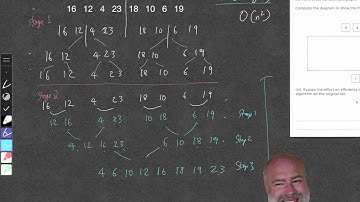 16 12 4 23 18 10 6 19
O(n²)
Complete the diagram to show the m
Stage 1
16 12 4 23 18 10 6 19
16 12 4 23 18 10 6 19
16 12 4 23 18 10 6 19
Stage 2
16 12 4 23 18 10 6 19
12 16 4 23 10 18 6 19 Stage 1
4 12 16 23 6 10 18 19 Stage 2
4 6 10 12 16 18 19 23 Stage 3
(iii) Explain the effect on efficiency
algorithm on the original list